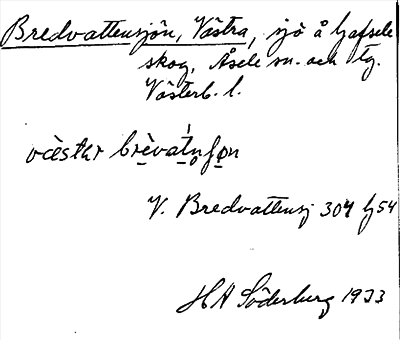 Bredvattensjön, Västra, sjö å Gafsele
skog, Åsele sn. och tg.
Västerb. l.
V. Bredvattensj 304 hj 54
H A Söderberg 1933